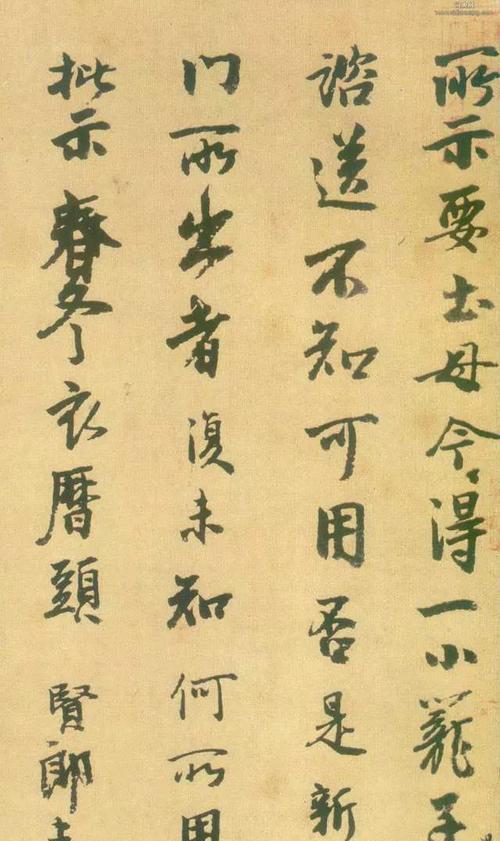 所示要土母今得一小籠子
諮送不知可用否是新
门所出者復未知何所用
批示春冬衣曆頭賢郎